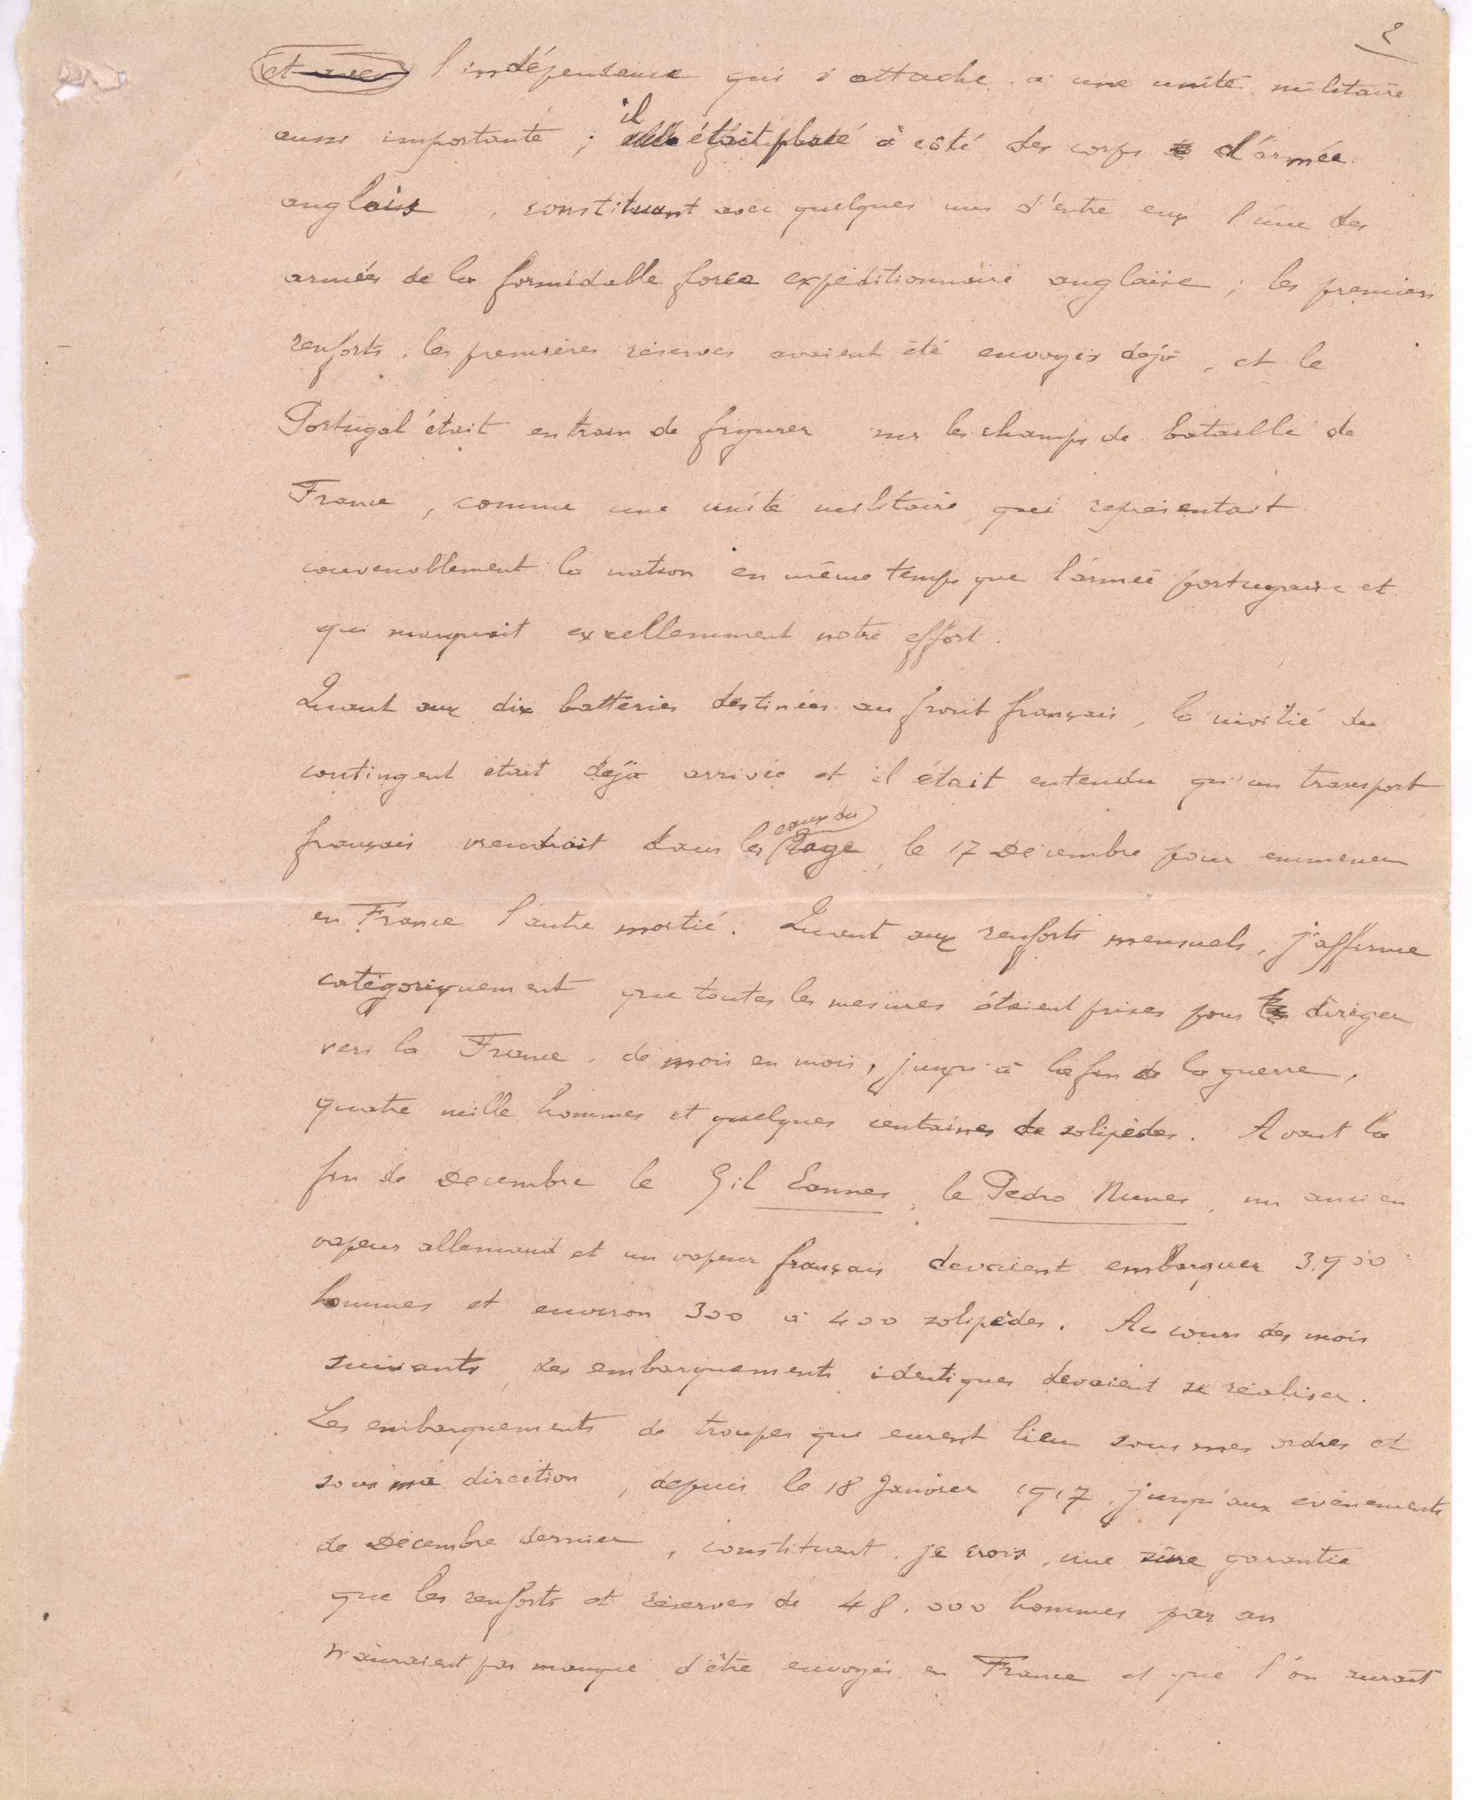 2
et avec l'indépendance qui s'attache à une unité militaire
aussi importante ; il était placé à côté des corps d'armée
anglais, constituant avec quelques uns d'entre eux l'une des
armées de la formidable force expéditionnaire anglaise ; les premiers
renforts, les premières réserves avaient été envoyés déjà, et le
Portugal était en train de figurer sur les champs de bataille de
France, comme une unité militaire qui représentait
convenablement la nation en même temps que l'armée portugaise et
qui marquait excellemment notre effort.
Quant aux dix batteries destinées au front français, la moitié du
contingent était déjà arrivée et il était entendu qu'un transport
français viendrait dans les eaux du Tage, le 17 Décembre pour emmener
en France l'autre moitié. Quant aux renforts mensuels, j'affirme
catégoriquement que toutes les mesures étaient prises pour diriger
vers la France, de mois en mois, jusqu'à la fin de la guerre,
quatre mille hommes et quelques centaines de solipèdes. Avant la
fin de Décembre le Gil Eannes, le Pedro Nunes, un ancien
vapeur allemand et un vapeur français devaient embarquer 3.900
hommes et environ 300 à 400 solipèdes. Au cours des mois
suivants, des embarquements identiques devaient se réaliser.
Les embarquements de troupes que eurent lieu sous mes ordres et
sous ma direction, depuis le 18 Janvier 1917, jusqu'aux événements
de Décembre dernier, constituent, je crois, une sûre garantie
que les renforts et réserves de 48.000 hommes par an
n'auraient pas manqué d'être envoyés en France et que l'on aurait